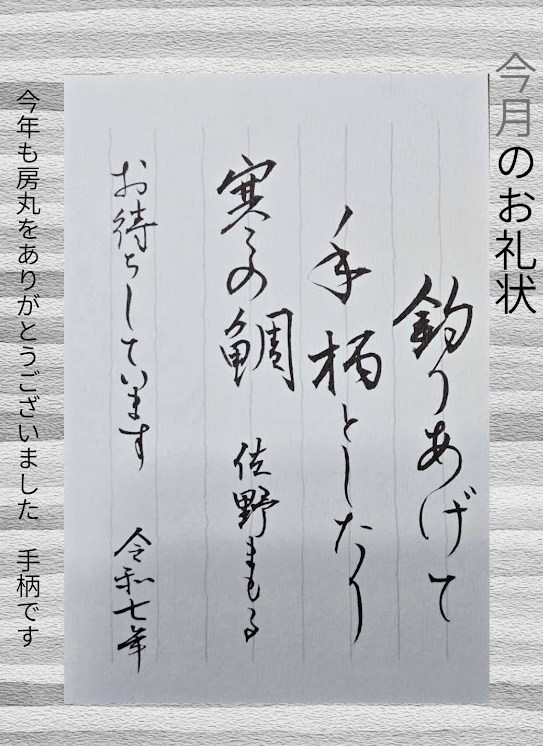 今月のお礼状
釣りあげて
手柄としたり
寒の鯛 佐野まもる
お待ちしています 令和七年
今年も房丸をありがとうございました 手柄です